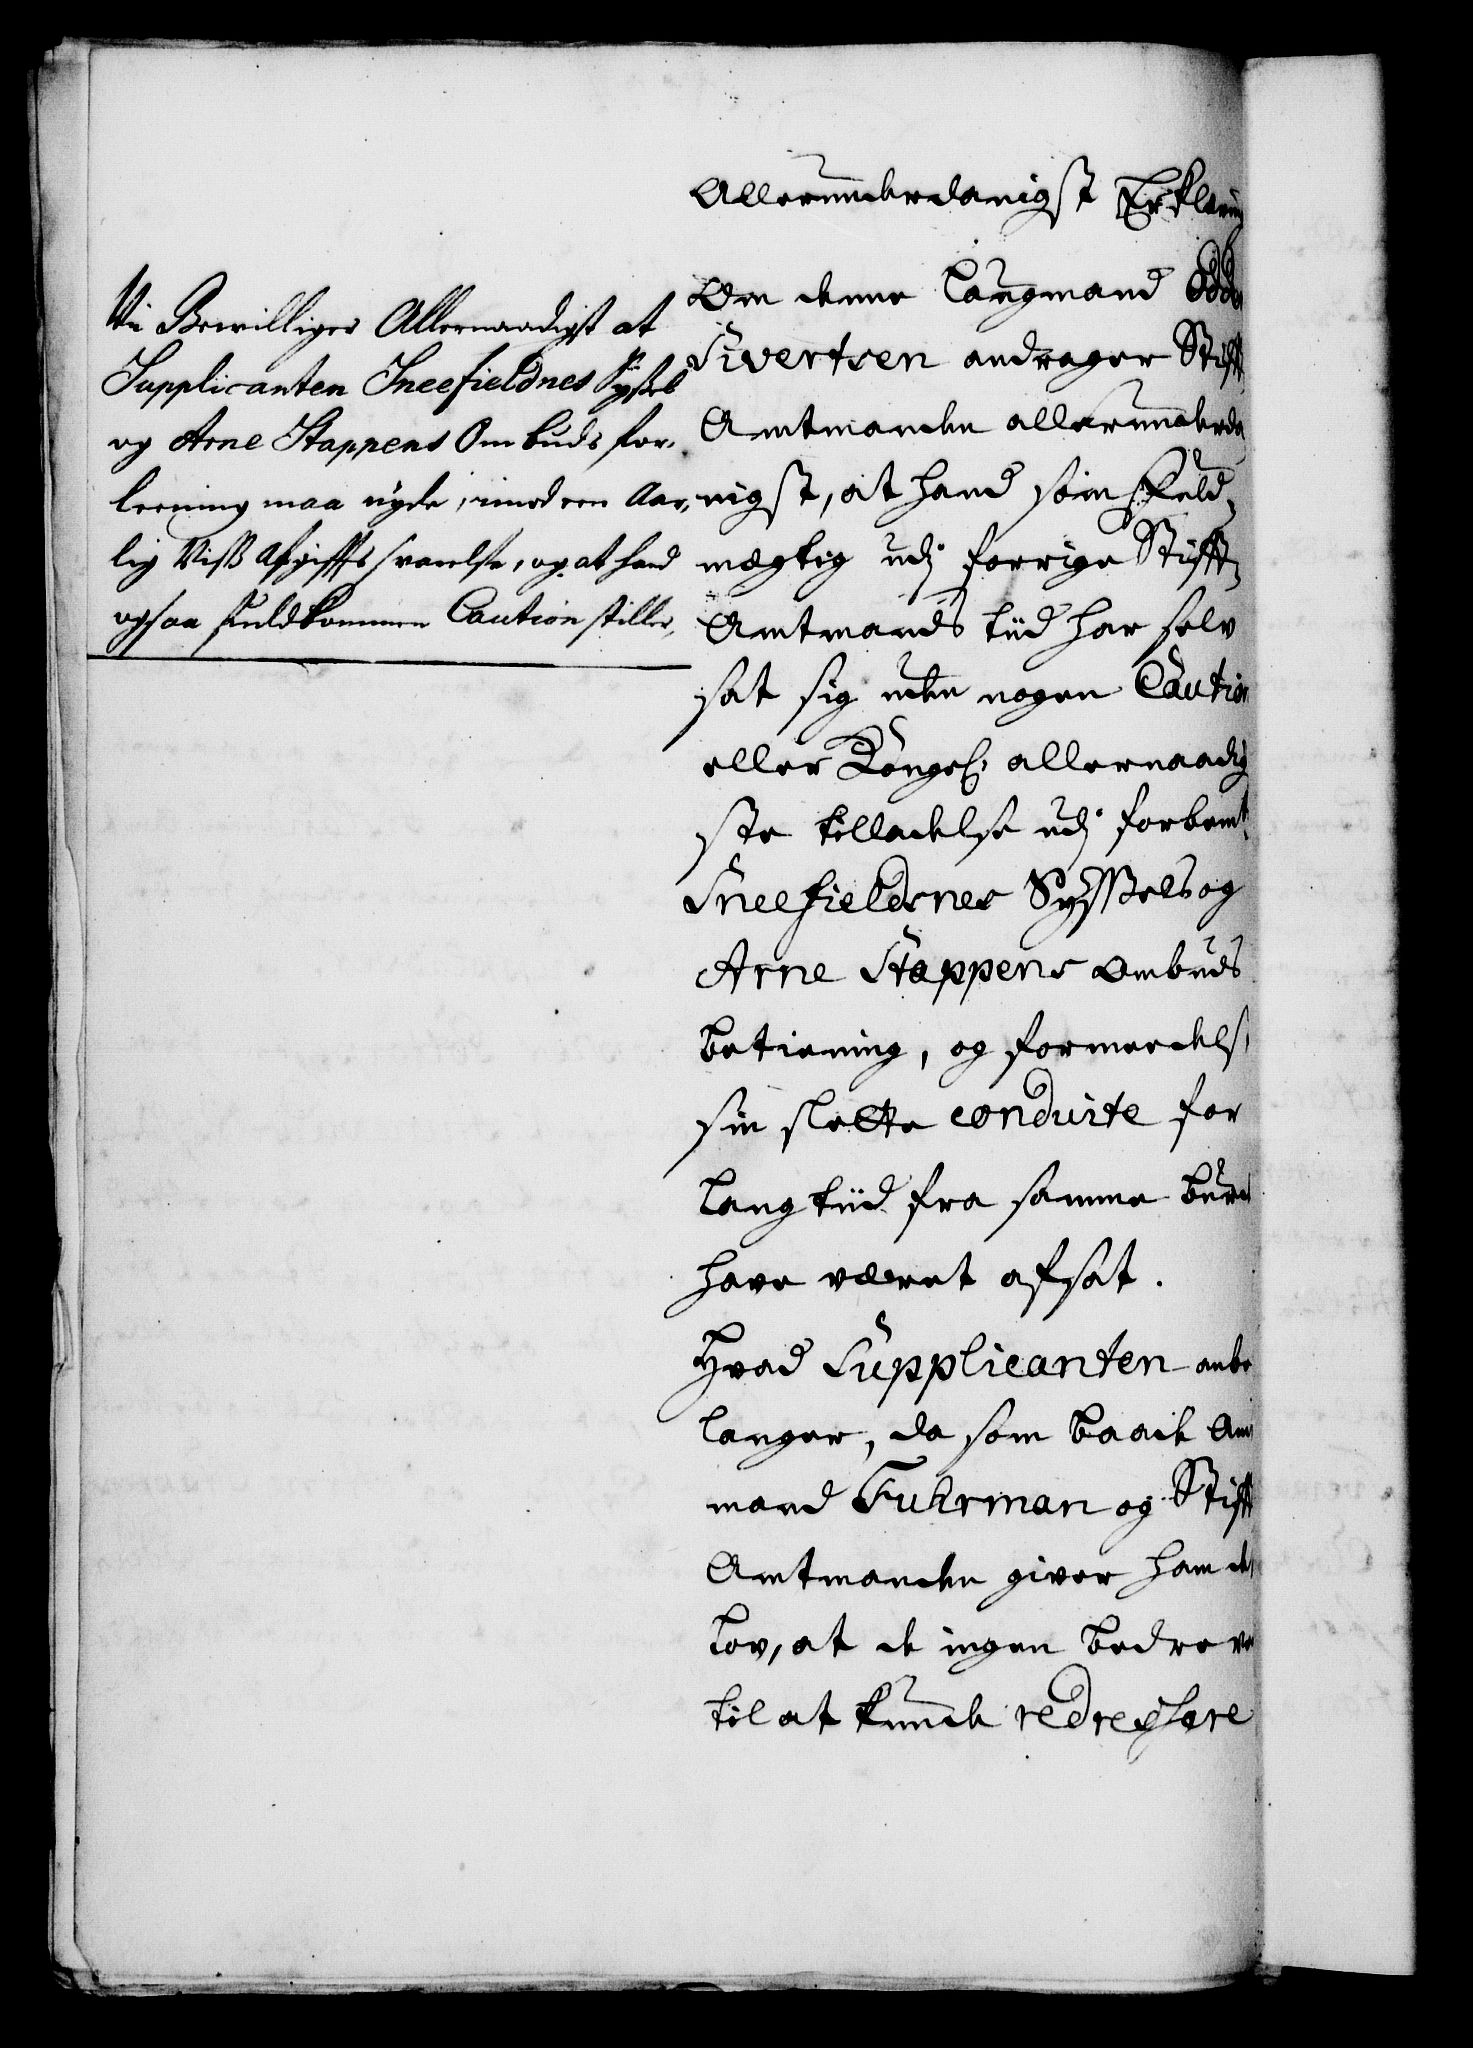 Vii Bewilliger Allernaadigst at
Supplicanten Sneefieldnes Syssel
og Arne Stappens Ombuds for-
leening maa nyde, imod een Aar-
lig Viss Afgiffts svarelse, og at hand
ogsaa fuldkommen Caution stiller,
Allerunderdanigst Erklæring
Om denne Laugmand Odde
Sivertsen andrager Stifft
Amtmanden allerunderda
nigst, at hand som fuld-
mægtig udj forrige Stifft-
Amtmands tiid har selv
sat sig uden nogen Caution
eller Kongel: allernaadig
ste tilladelse udj forbemt
Sneefieldsnes Sysssels og
Arne Stappens Ombuds
betiening, og formedelst
sin slette conduite for
lang tiid fra samme burde
have været afsat.
Hvad Supplicanten anbe
langer, da som baade Amt
mand Fuhrman og Stifft
Amtmanden giver ham det
lov, at de ingen bedre ve
til at kunde redressere